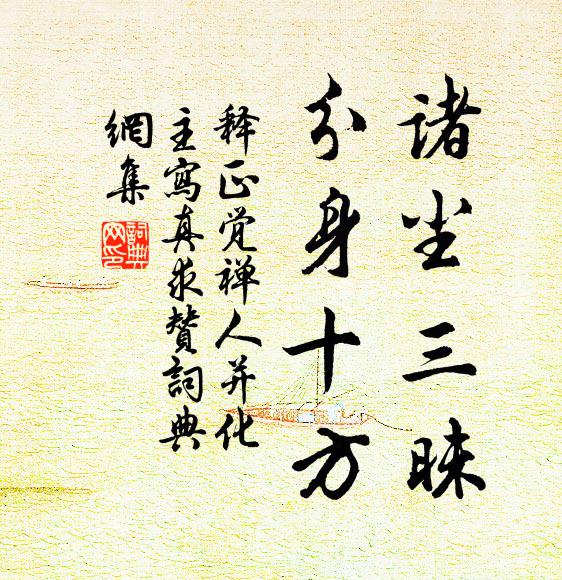 诸尘三昧
分身十方
释正觉禅人并化
主写真求赞词典
網集
詞典
网印